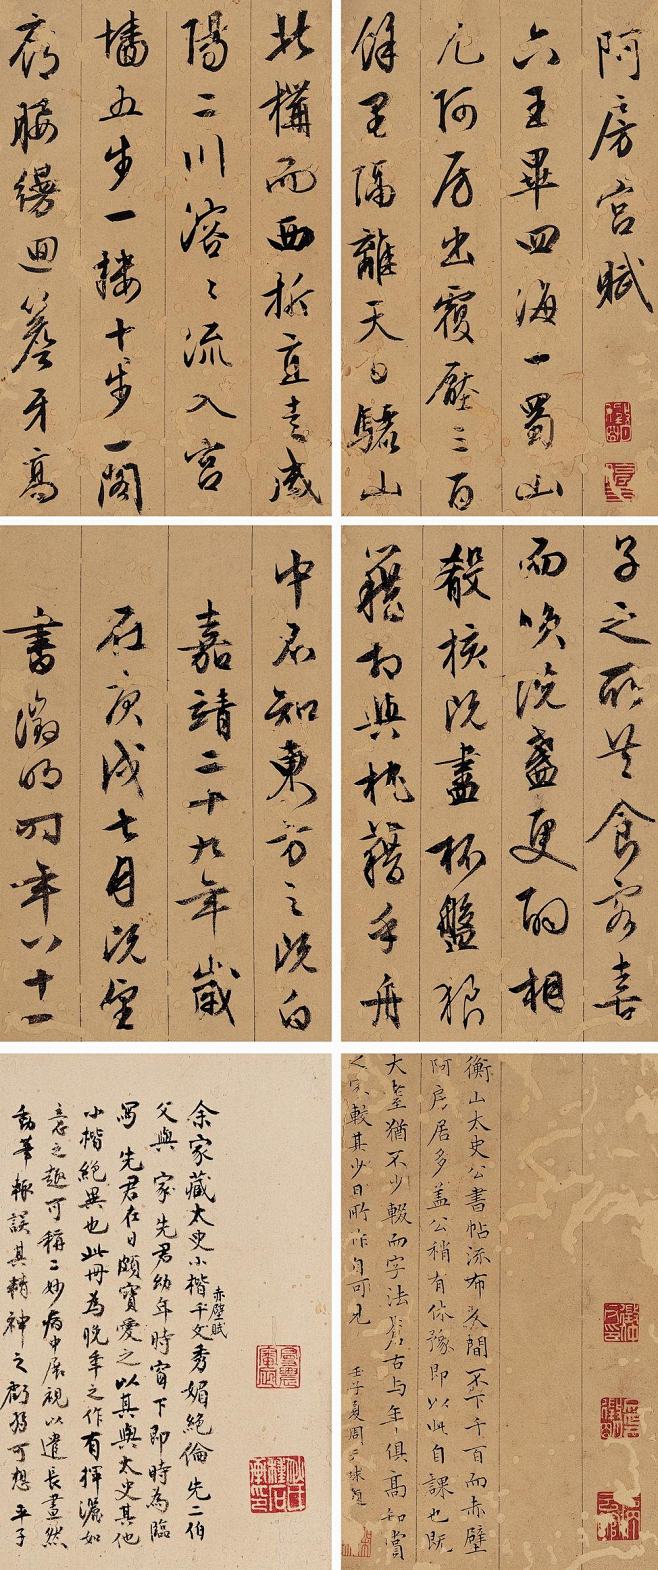 阿房宫賦
六王畢四海一蜀山
兀阿房出覆壓三百
餘里隔離天日驪山
北構而西折直走咸
陽二川溶〻流入宫
墻五步一樓十步一閣
廊腰縵迴簷牙高
子之所共食客喜
而笑洗盞更酌相
殽核既盡杯盤狼
籍相與枕藉乎舟
中不知東方之既白
嘉靖二十九年歲
在庚戌七月既望
書徵明時年八十一
衡山太史公書帖流布人間不下千百而赤壁
阿房居多蓋公稍有休豫即以此自課也既
大耋猶不少輟而字法蒼古与年俱高知賞
之家較其少日所作自可見 壬子夏周天球題
余家藏太史小楷千文赤壁賦秀媚絕倫先二伯
父與家先君幼年時窗下即時為臨
寫先君在日頗寶愛之以其與太史其他
小楷絕異也此冊為晚年之作有揮灑如
意之趣可稱二妙病中展視以遣長晝然
動筆輒誤其精神之可想平子